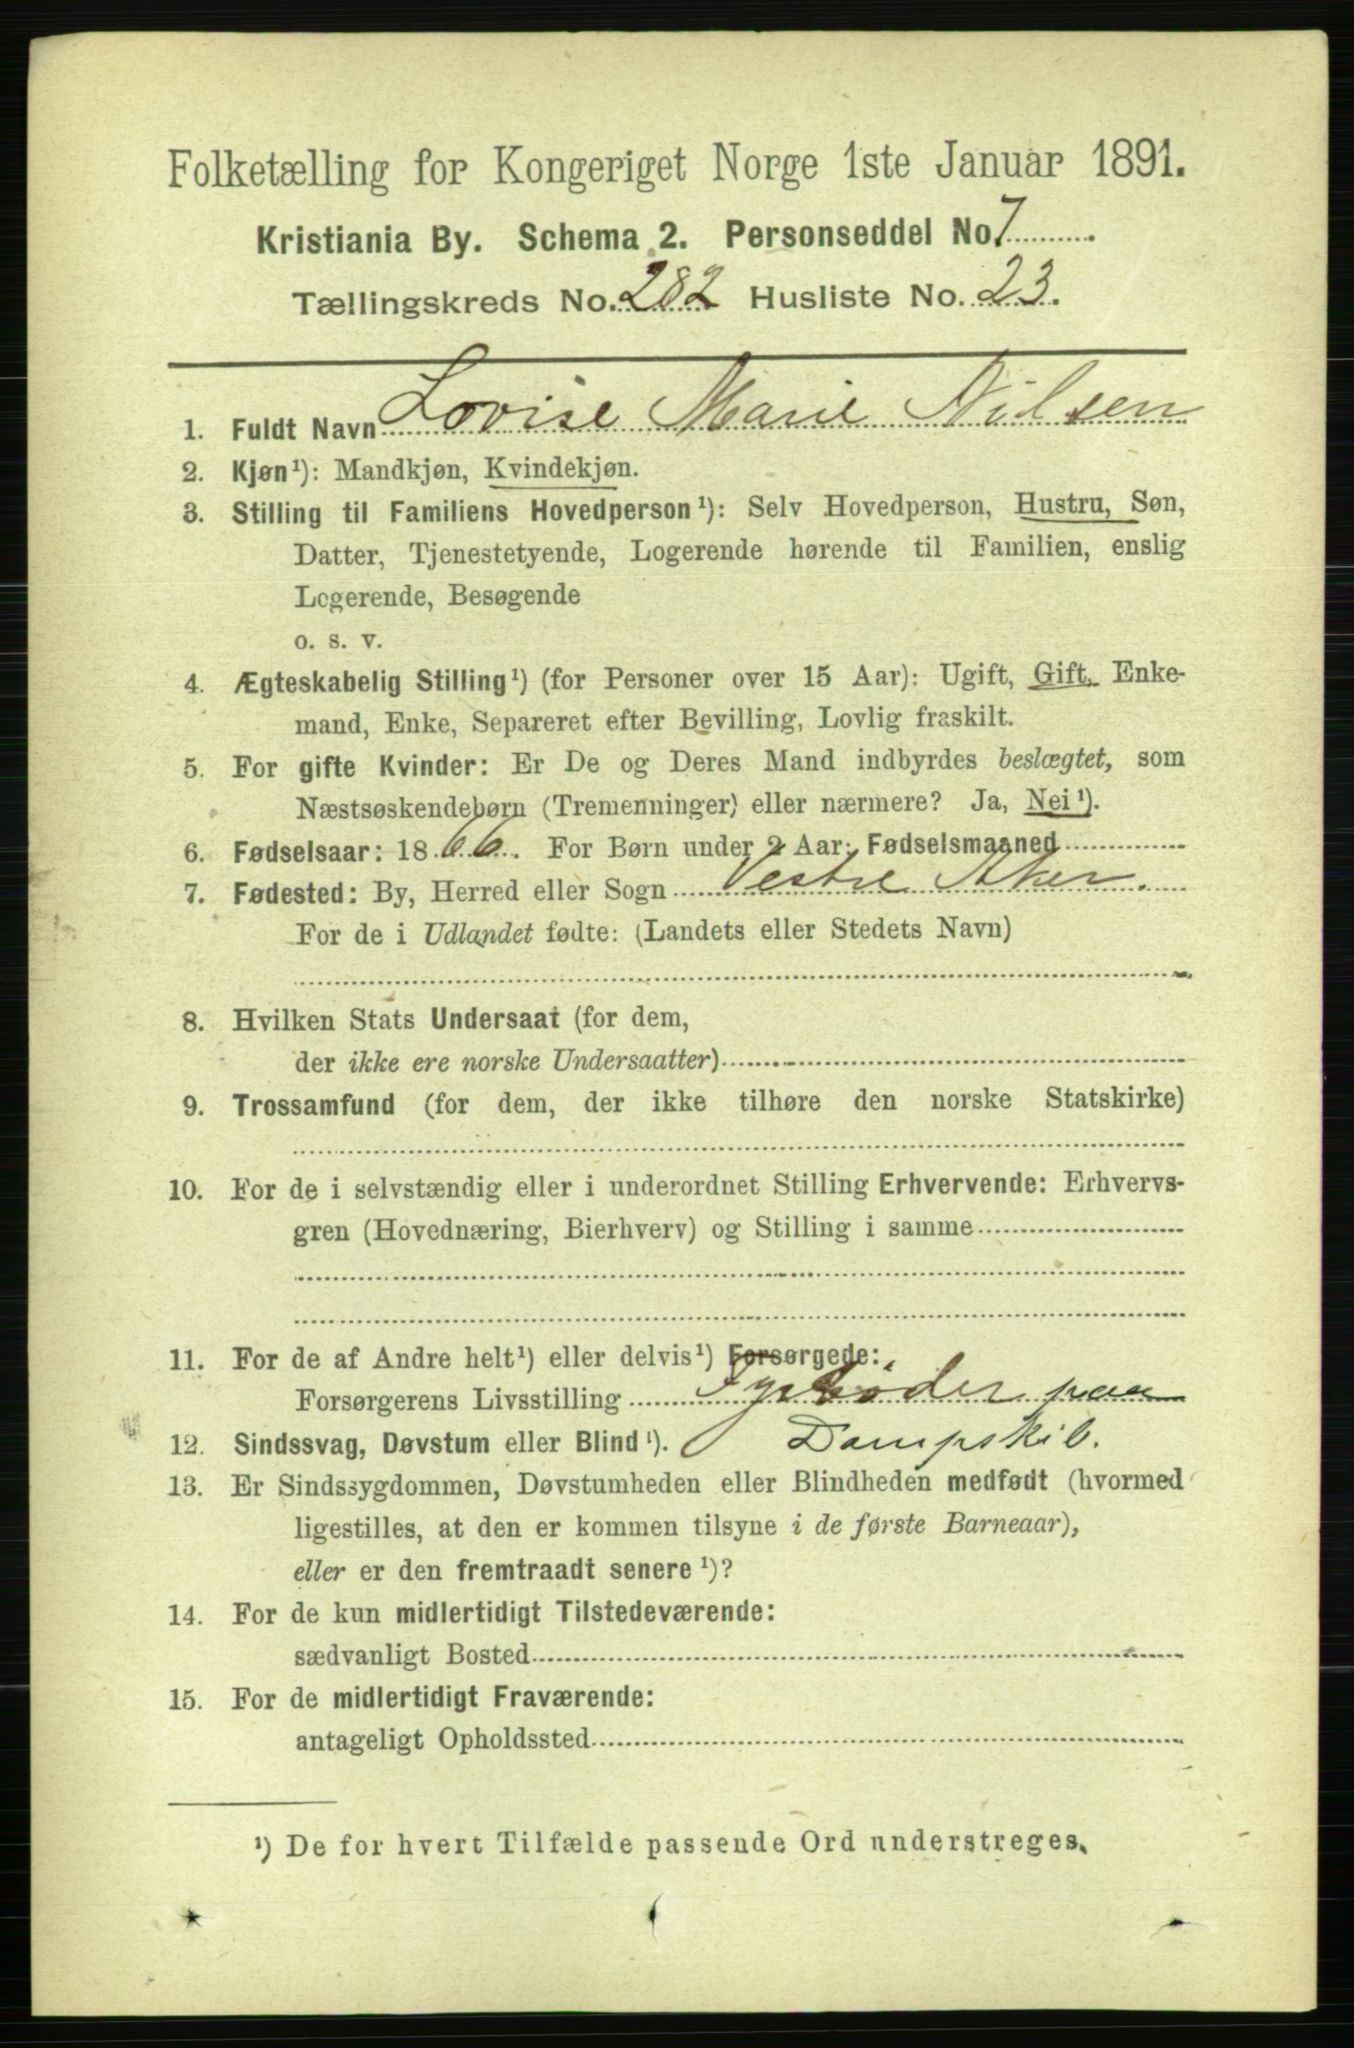 Folketælling for Kongeriget Norge 1ste Januar 1891.
Kristiania By. Schema 2. Personseddel No. 7
Tællingskreds No. 282 Husliste No. 23.
1. Fuldt Navn Lovise Marie Nilsen
2. Kjøn¹): Mandkjøn, Kvindekjøn.
3. Stilling til Familiens Hovedperson¹): Selv Hovedperson, Hustru, Søn,
Datter, Tjenestetyende, Logerende hørende til Familien, enslig
Logerende, Besøgende
o. s. v.
4. Ægteskabelig Stilling¹) (for Personer over 15 Aar): Ugift, Gift, Enke-
mand, Enke, Separeret efter Bevilling, Lovlig fraskilt.
5. For gifte Kvinder: Er De og Deres Mand indbyrdes beslægtet, som
Næstsøskendebørn (Tremenninger) eller nærmere? Ja, Nei¹).
6. Fødselsaar: 1866. For Børn under 2 Aar: Fødselsmaaned
7. Fødested: By, Herred eller Sogn Vestre Aker.
For de i Udlandet fødte: (Landets eller Stedets Navn)
8. Hvilken Stats Undersaat (for dem,
der ikke ere norske Undersaatter)
9. Trossamfund (for dem, der ikke tilhøre den norske Statskirke)
10. For de i selvstændig eller i underordnet Stilling Erhvervende: Erhvervs-
gren (Hovednæring, Bierhverv) og Stilling i samme
11. For de af Andre helt¹) eller delvis¹) Forsørgede:
Forsørgerens Livsstilling Fyrbøder paa
12. Sindssvag, Døvstum eller Blind¹). Dampskib.
13. Er Sindssygdommen, Døvstumheden eller Blindheden medfødt (hvormed
ligestilles, at den er kommen tilsyne i de første Barneaar),
eller er den fremtraadt senere¹)?
14. For de kun midlertidigt Tilstedeværende:
sædvanligt Bosted
15. For de midlertidigt Fraværende:
antageligt Opholdssted
¹) De for hvert Tilfælde passende Ord understreges.